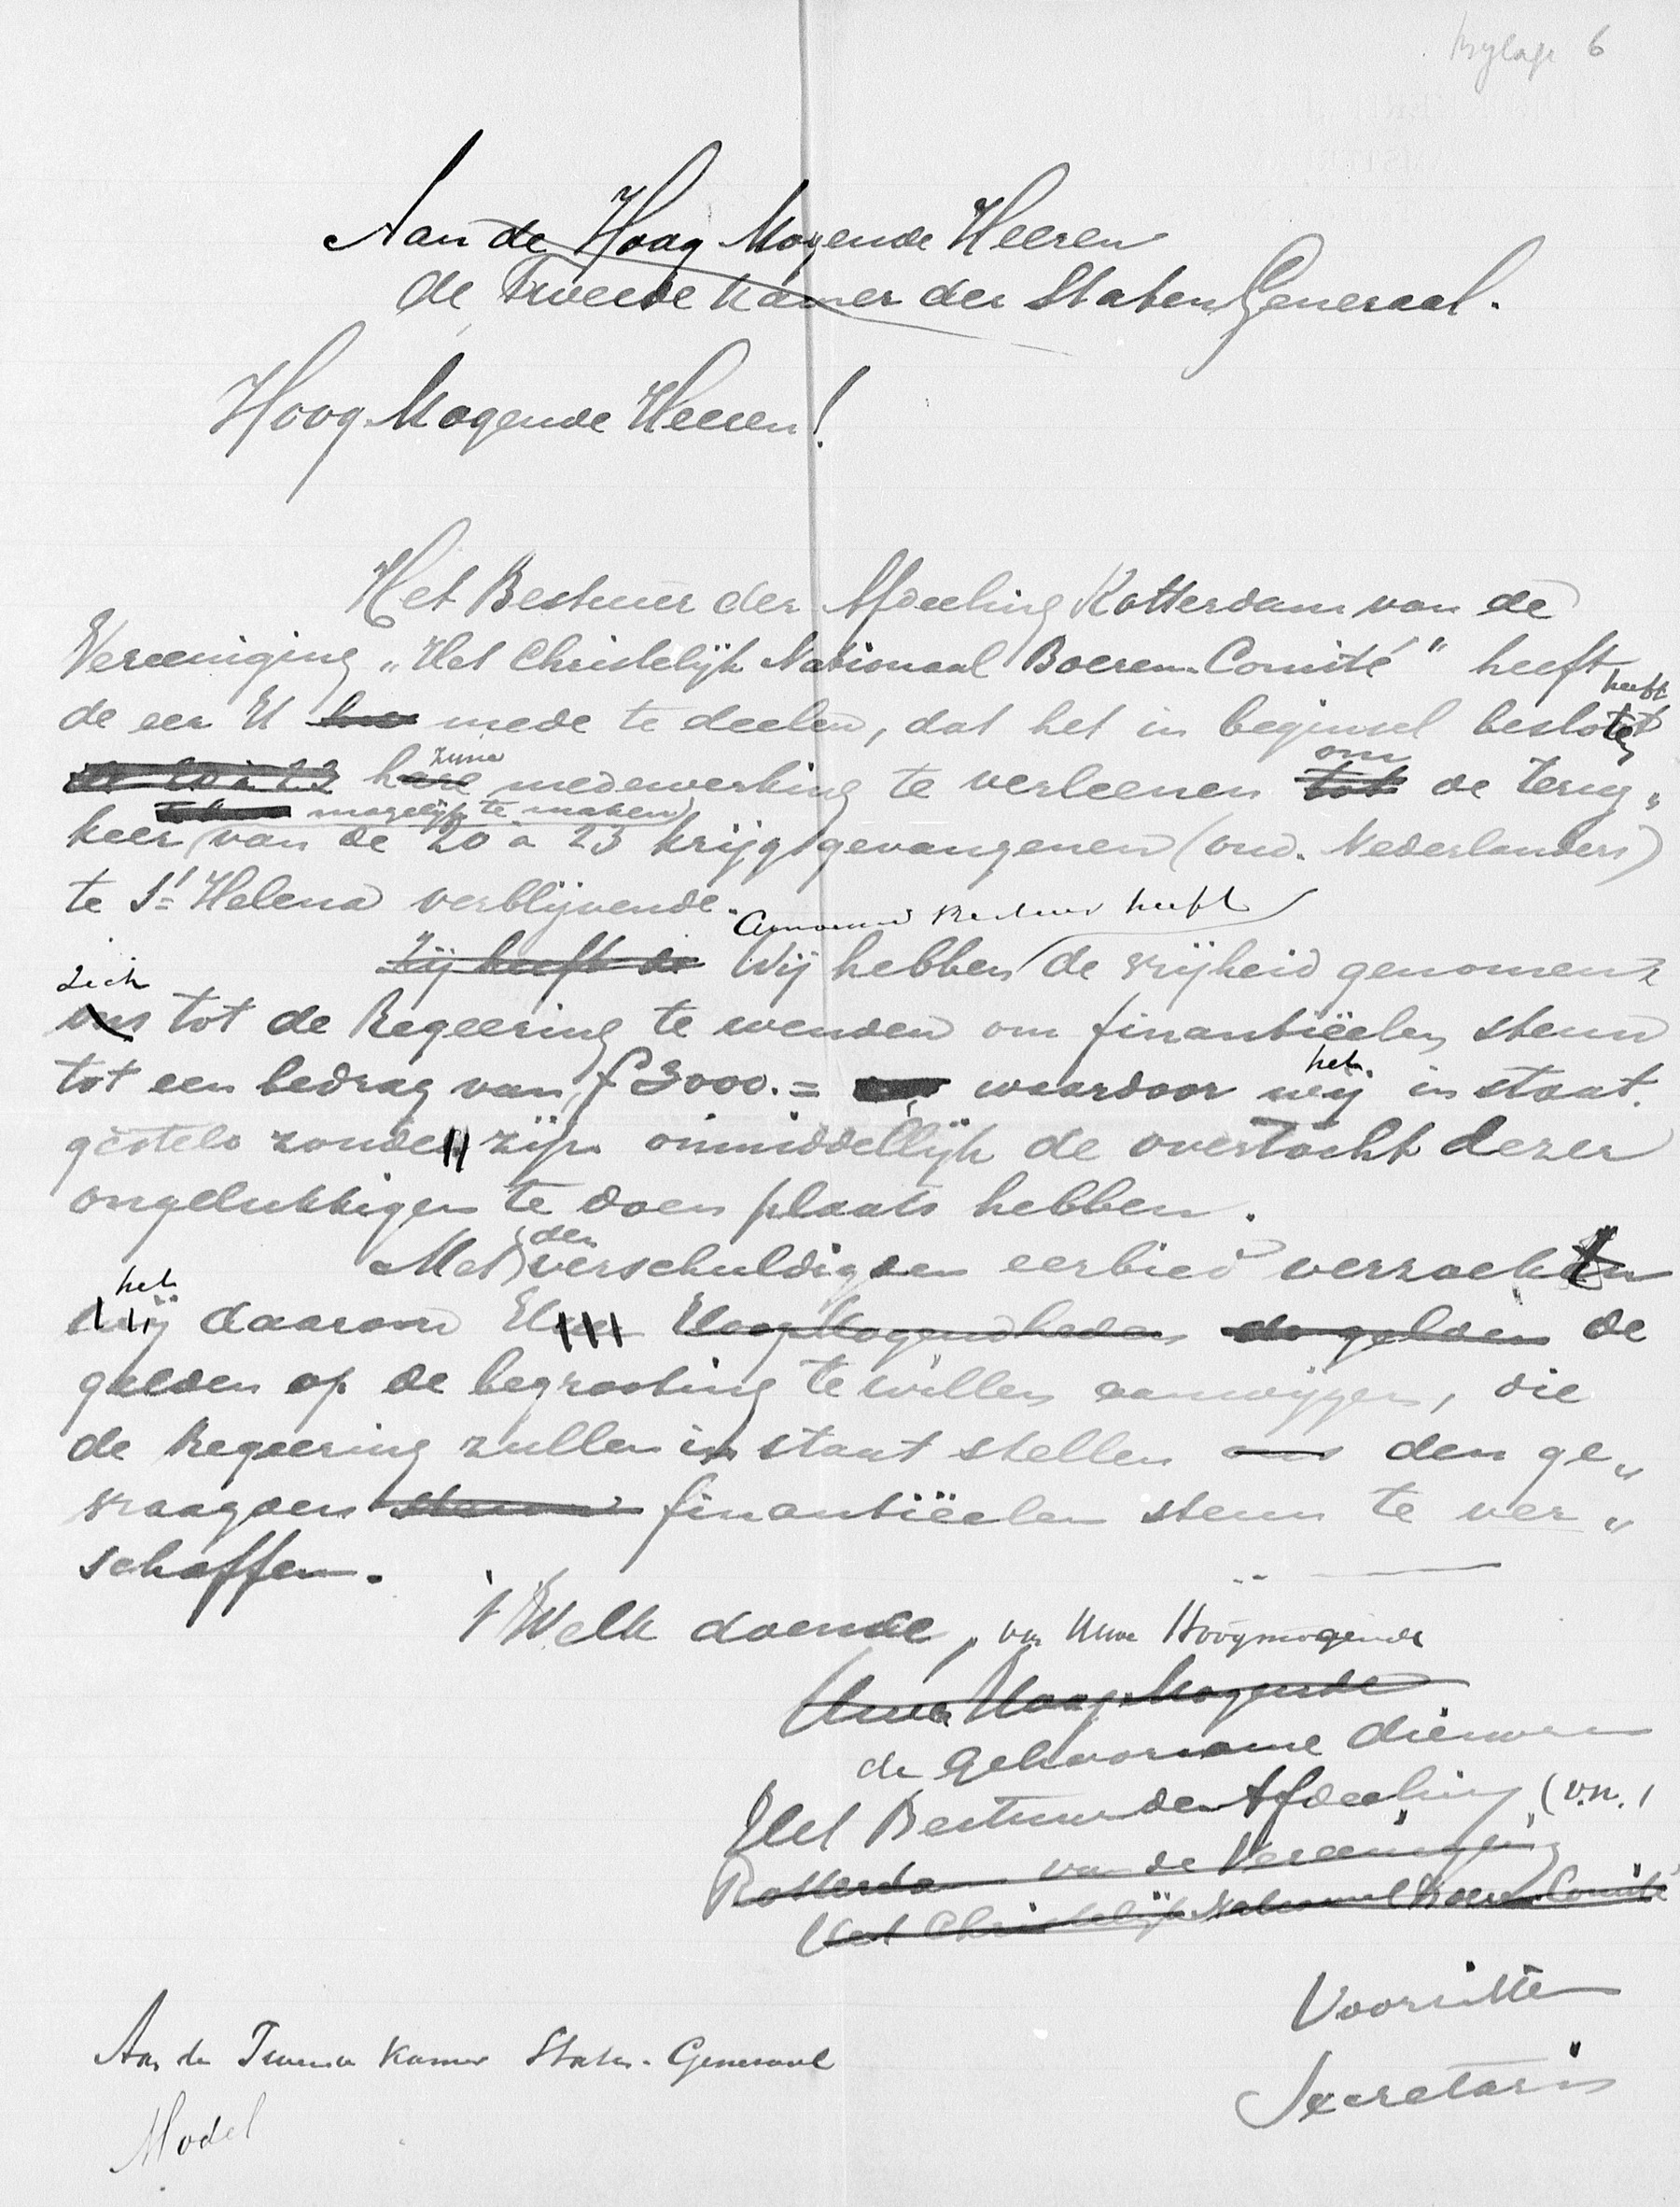 Bylage 6
Aan de Hoog Mogende Heeren
de Tweede Kamer der Staten Generaal.
Hoog Mogende Heeren!
Het Bestuur der Afdeeling Rotterdam van de
Vereeniging „Het Christelijk Nationaal Boeren-Comité" heeft
heeft
de eer U mede te deelen, dat het in beginsel besloten
zijne om
de 20 à 23 hare medewerking te verleenen tot de terug„
mogelijk te maken
keer van de 20 à 23 krijgsgevangenen (oud. Nederlanders)
te St Helena verblijvende.
Genoemd Bestuur heeft
Zij heeft de Wij hebben de vrijheid genomen
zich
ons tot de Regeering te wenden om finantiëelen steun
het
tot een bedrag van f 3000.= waardoor wij in staat
gesteld zonden zijn onmiddellijk de overtocht dezer
ongelukkigen te doen plaats hebben.
den
Met verschuldigden eerbied verzoekt
het
wij daarom U Hoog Mogendheden de gelden de
gelden op de begrooting te willen aanwijzen, die
de Regeering zullen in staat stellen ons den ge„
vraagden steun finantiëelen steun te ver„
schaffen.
't Welk doende, van Uwe Hoogmogende
Uwer Hoog Mogende
de gehoorzame dienaren
Het Bestuur der Afdeeling (v.n.)
Rotterdam van de Vereeniging
Het Christelijk Nationaal Boeren-Comité
Voorzitter
Secretaris
Aan de Tweede Kamer Staten-Generaal
Model